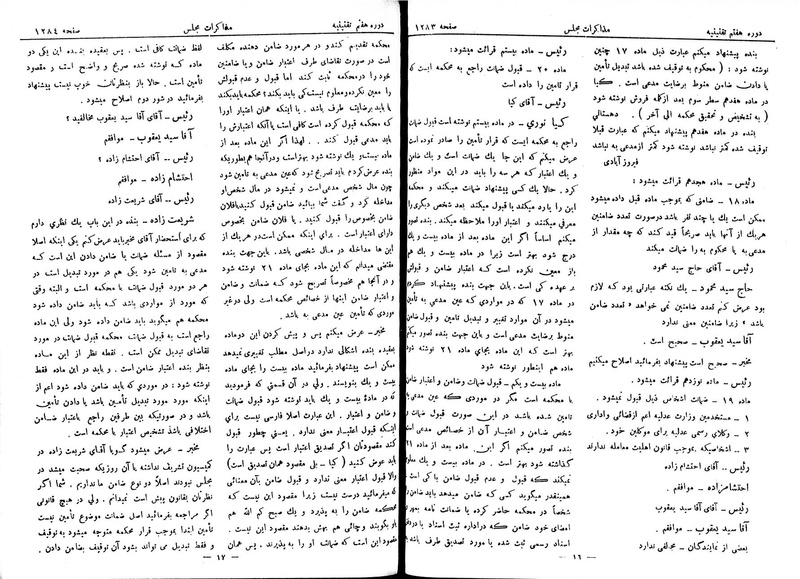 دوره هفتم تقنینیه
مذاکرات مجلس
صفحه ۱۲۸۳
بنده پیشنهاد میکنم عبارت ذیل ماده ۱۷ چنین
نوشته شود : ( محکوم به توقیف شده باشد تبدیل تأمین
یا دادن ضامن منوط برضایت مدعی است . کیا
در ماده هفدهم سطر سوم بعد ازکلمه فروش نوشته شود
( به تشخیص و تحقیق محکمه الی آخر ) . دهستانی
بنده در ماده هفدهم پیشنهاد میکنم که عبارت قبلا
توقیف شده کمتر نباشد نوشته شود کمتر ازمدعی به نباشد
فیروزآبادی
رئیس - ماده هیجدهم قرائت میشود :
ماده ۱۸ - ضامنی که بموجب ماده قبل داده میشود
ممکن است یك یا چند نفر باشد درصورت تعدد ضامنین
هریك از آنها باید صریحاً قید کند که چه مقدار از
مدعی به یا محکوم به را ضمانت میکند
رئیس - آقای حاج سید محمود
حاج سید محمود - یك نکته عبارتی بود که لازم
بود عرض کنم تعدد ضامنین نمی خواهد ؛ تعدد ضامن
باشد ؛ زیرا ضامنین معنی ندارد
آقا سید یعقوب - صحیح است .
مخبر - صحیح است پیشنهاد بفرمائید اصلاح میکنیم
رئیس - ماده نوزدهم قرائت میشود :
ماده ۱۹ - ضمانت اشخاص ذیل قبول نمیشود .
۱ - مستخدمین وزارت عدلیه اعم ازقضائی واداری
۲ - وکلای رسمی عدلیه برای موکلین خود .
۳ - اشخاصیکه بموجب قانون اهلیت معامله ندارند
رئیس - آقای احتشام زاده
احتشامزاده - موافقم .
رئیس - آقای آقا سید یعقوب
آقا سید یعقوب - موافقم .
بعضی از نمایندگان - مخالفی ندارد
رئیس - ماده بیستم قرائت میشود :
ماده ۲۰ - قبول ضمانت راجع به محکمه ایست که
قرار تأمین را داده است
رئیس - آقای کیا
کیا نوری - در ماده بیستم نوشته است قبول ضمانت
راجع به محکمه ایست که قرار تأمین را صادر نموده است
عرض میکنم که این جا یك ضمانت است و یك ضامن
و یك اعتبار که هر سه را باید در این مواد منظور
کرد . حالا یك کسی پیشنهاد ضمانت میکند و محکمه
این را یا رد میکند یا قبول میکند بعد شخص دیگری را
معرفی میکنند و اعتبار اورا ملاحظه میکند . بنده تصور
میکنم اساساً اگر این ماده بعد از ماده بیست ویك
درج شود بهتر است زیرا در ماده بیست و یك هم
باز معین نکرده است که اعتبار ضامن و قبولش
بر عهده کی است . باین جهت بنده پیشنهاد کردم
در ماده ۱۷ که در مواردی که عین مدعی به تأمین
میشود در آن موارد تغییر و تبدیل تأمین و قبول ضامن
منوط برضایت مدعی است و باین جهت بنده تصور میکنم
بهتر است که این ماده بجای ماده ۲۱ نوشته شود
ماده هم اینطور نوشته شود
ماده بیست و یکم - قبول ضمانت وضامن و اعتبار ضامن
با محکمه است مگر در موردی که عین مدعی به
تامین شده باشد در این صورت قبول ضمانت یا
شخص ضامن و اعتبار آن از خصائص مدعی است
بنده تصور میکنم اگر این ماده بعد از ماده ۲۱
گذاشته شود بهتر است . در ماده بیست و یك معلوم
نمیکند که قبول و عدم قبول ضامن با کی است
همینقدر میگوید کسی که ضامن میدهد باید ضامن را
شخصاً در محکمه حاضر کرده یا ضمانت نامه بمهر یا
امضای خود ضامن که دراداره ثبت اسناد یا در دفتر
اسناد رسمی ثبت شده یا مورد تصدیق طرف باشد به
- ۱۶ -
دوره هفتم تقنینیه
مذاکرات مجلس
صفحه ۱۲۸۴
محکمه تقدیم کنند و در هر مورد ضامن دهنده مکلف
است در صورت تقاضای طرف اعتبار ضامن ویا ضامنین
خود را درمحکمه ثابت کند اما قبول و عدم قبولش
را معین نکرده ومعلوم نیست کی باید بکند ؟ محکمه باید بکند
یا باید برضایت طرف باشد . با اینکه همان اعتبار اورا
که محکمه قبول کرده است کافی است یا آنکه اعتبارش را
باید مدعی قبول کند . . لهذا اگر این ماده بعد از
ماده بیست و یك نوشته شود بهتراست ودرآنجا هم بطوریکه
بنده عرض کردم باید تصریح شود که عین مدعی به تأمین شود
چون مال شخص مدعی است و نمیشود در مال شخص او
مداخله کرد و گفت شما بیائید ضامن قبول کنید یا فلان
ضامن بخصوص را قبول کنید . یا فلان ضامن بخصوص
دارای اعتبار است . برای اینکه ممکن است در هر یك از
این ها مداخله در مال شخصی باشد . باین جهت بنده
مقتضی میدانم که این ماده بجای ماده ۲۱ نوشته شود
و در آنجا هم خصوصاً تصریح شود که ضمانت و ضامن
و اعتبار ضامن اینها از خصائص محکمه است ولی در غیر
موردی که تأمین عین مدعی به باشد .
مخبر - عرض میکنم پس و پیش کردن این دوماده
بعقیده بنده اشکالی ندارد دراصل مطلب تغییری نمیدهد
ممکن است پیشنهاد بفرمائید ماده بیست را بجای ماده
بیست و یك بنویسند . ولی در آن قسمتی که فرمودید
در مادهٔ بیست و یك باید نوشته شود قبول ضمانت
و ضامن و اعتبار . این عبارت اصلا فارسی نیست برای
اینکه قبول اعتبار معنی ندارد . یعنی چطور قبول
کند مقصودتان اگر تصدیق اعتبار است پس عبارت را
باید عوض کنید ( کیا - بلی مقصود همان تصدیق است )
والا قبول اعتبار معنی ندارد و قبول ضامن بآن معنائی
که میفرمائید درست نیست زیرا مقصود این نیست که
محکمه ضامن را به پذیرد و یك صبح کم الله هم
باو بگویند و چائی هم بهش بدهند مقصود این نیست .
مقصود این است که ضمانت او را به پذیرند . پس همان
لفظ ضمانت کافی است . پس بعقیده بنده این یکی دو
ماده که نوشته شده صریح و واضح است و مقصود
تأمین است . حالا باز بنظرتان خوب نیست پیشنهاد
بفرمائید در شور دوم اصلاح میشود .
رئیس - آقای آقا سید یعقوب مخالفید ؟
آقا سید یعقوب - موافقم
رئیس - آقای احتشام زاده ؟
احتشام زاده - موافقم
رئیس - آقای شریعت زاده
شریعت زاده - بنده در این باب یك نظری دارم
که برای استحضار آقای مخبر باید عرض کنم یکی اینکه اصلا
مقصود از مسئله ضمانت یا ضامن دادن این است که
مدعی به تأمین شود یکی هم در مورد تبدیل است در
هر دو مورد قبول ضمانت با محکمه است و البته وقتی
که مورد از مواردی باشد که باید ضامن داده شود
محکمه هم میگوید باید ضامن داده شود ولی این ماده
راجع است به قبول ضمانت محکمه قبول ضمانت در مورد
تقاضای تبدیل ممکن است . نقطه نظر از این ماده
بنظر بنده اعتبار ضامن است . و باید در این ماده فقط
نوشته شود : در موردی که باید ضامن داده شود اعم از
اینکه مورد مورد تبدیل تأمین باشد یا دادن تأمین
باشد و در صورتیکه بین طرفین راجع باعتبار ضامن
اختلافی باشد تشخیص اعتبار با محکمه است .
مخبر - عرض میشود گویا آقای شریعت زاده در
کمیسیون تشریف نداشته یا آن روزیکه صحبت میشد در
مجلس نبودند اصلا دو نوع ضامن ما نداریم . شما اگر
نظرتان بقانون پیش است نمیدانم . ولی در هیچ قانونی
اگر مراجعه بفرمائید اصل ضمانت موضوع تأمین نیست
تأمین ابتدا بموجب قرار محکمه متوجه میشود به توقیف
و فقط تبدیل می تواند بشود آن توقیف بضامن دادن .
- ۱۷ -